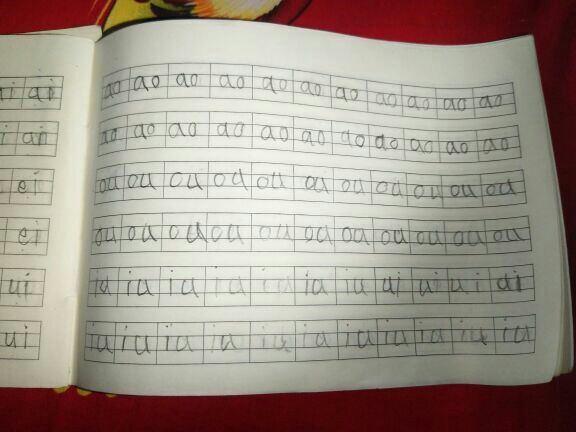 ai ai
i ai
ei
ei
ui
ui
ao ao ao ao ao ao ao ao ao ao ao
ao ao ao ao ao ao ao ao ao ao ao
ou ou ou ou ou ou ou ou ou ou ou
ou ou ou ou ou ou ou ou ou ou ou
iu iu iu iu iu iu iu ui ui ui ui
iu iu iu iu iu iu iu iu iu iu iu